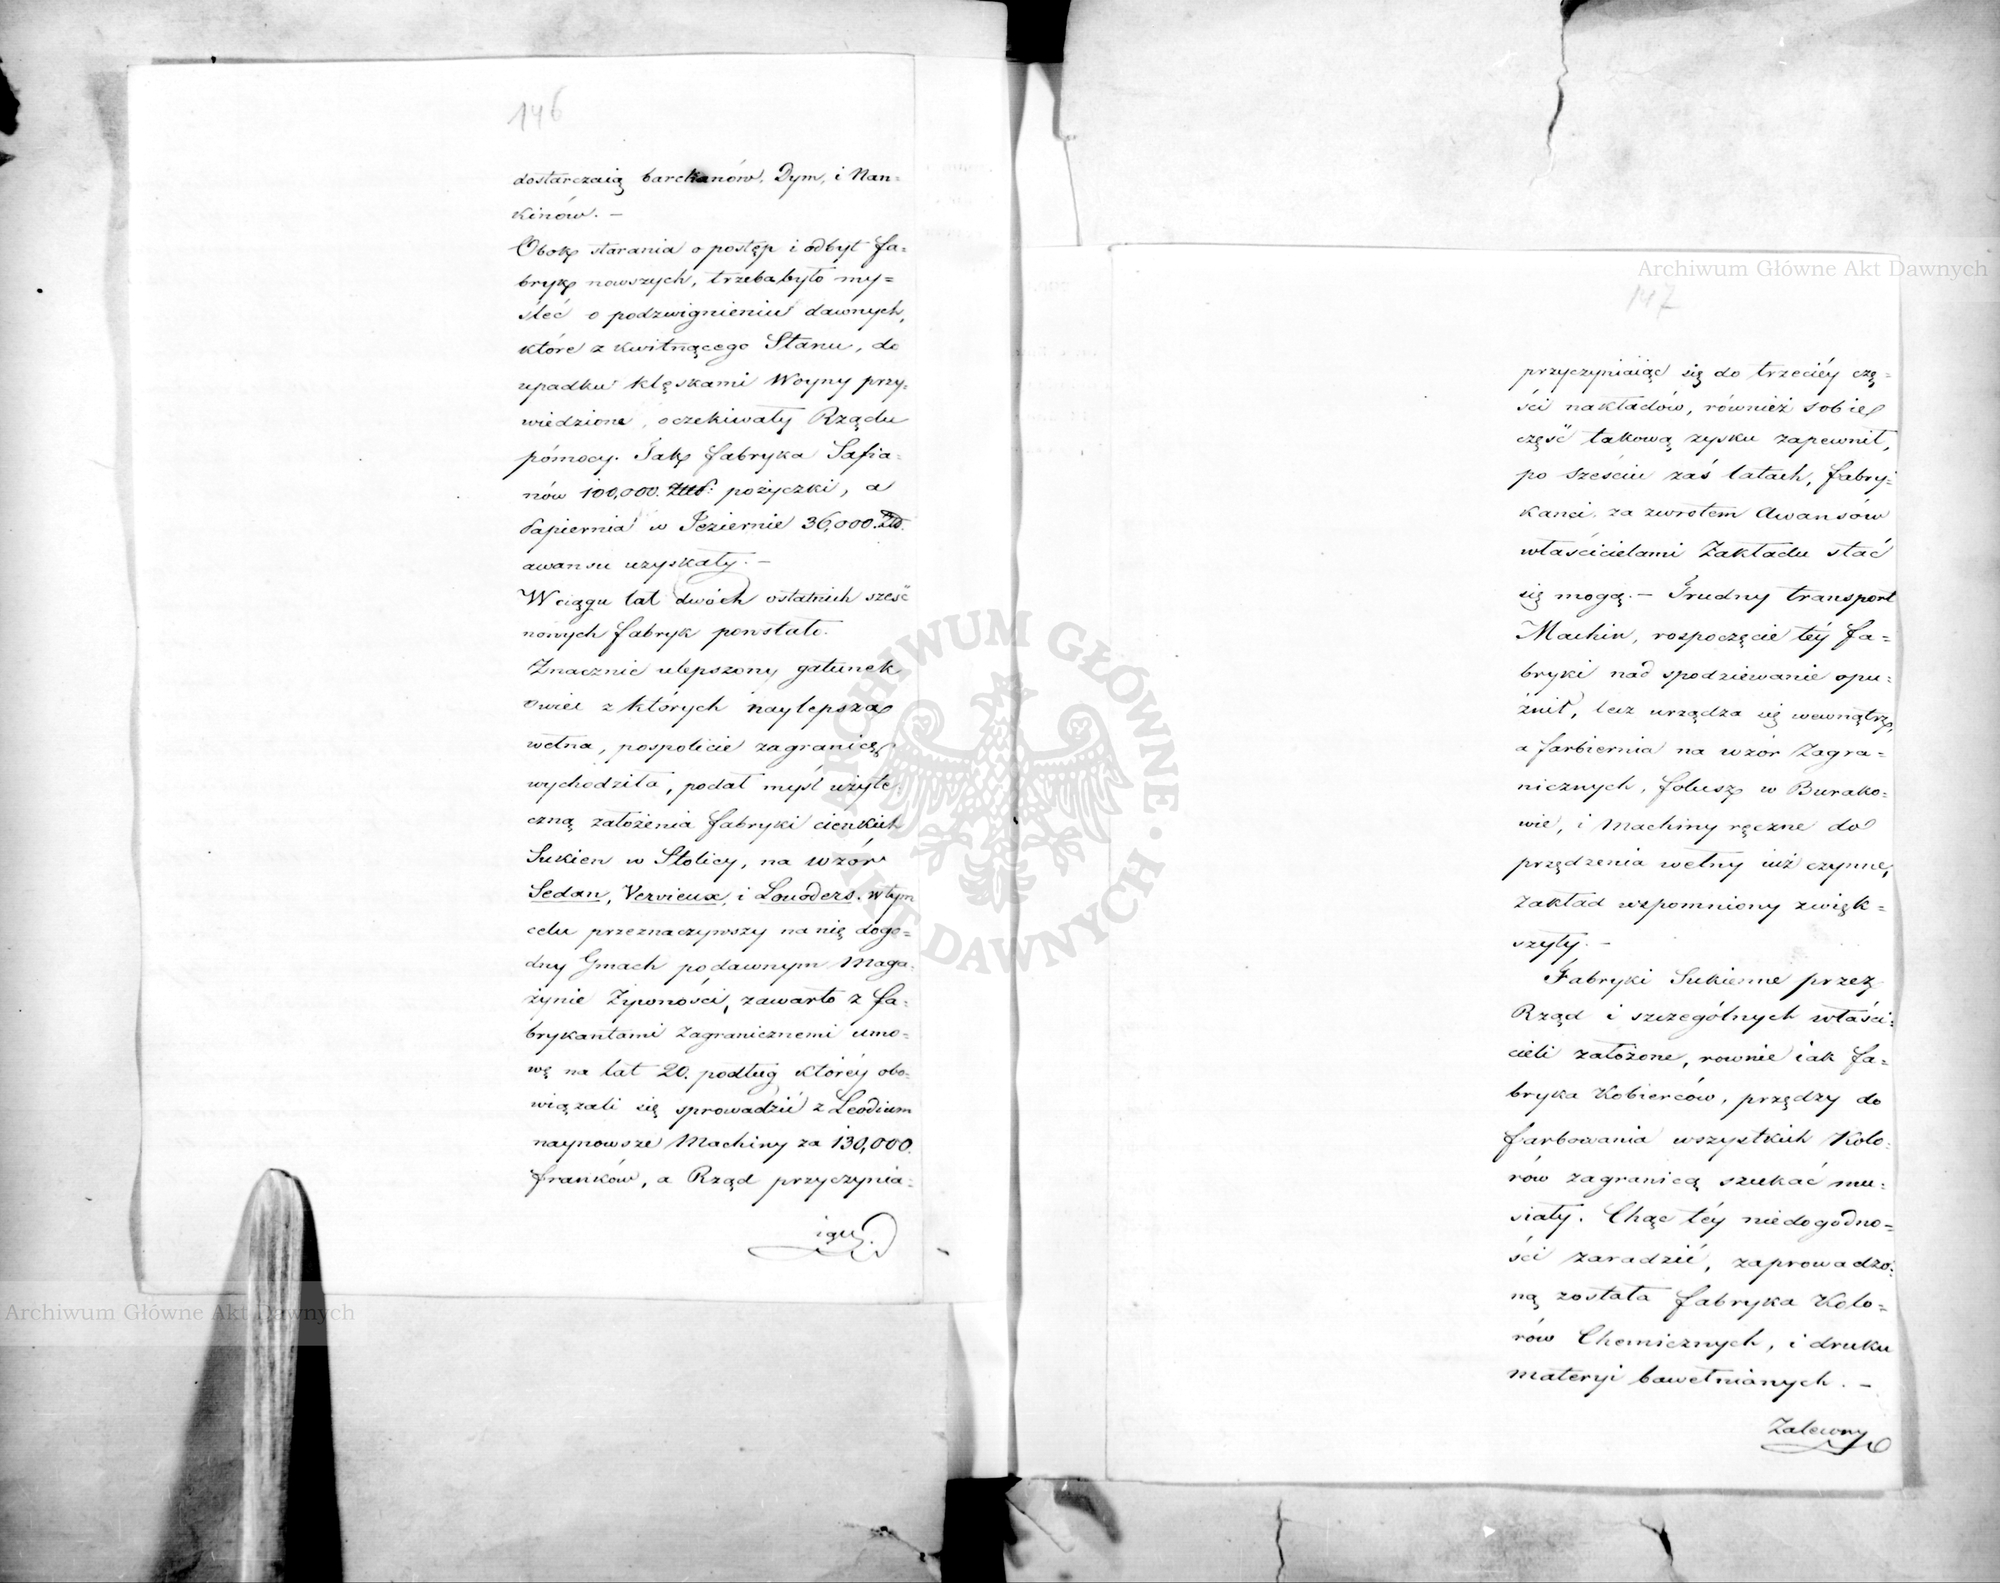 146
dostarczaią barchanów, Dym, i Nan=
kinów. –
Obok starania o postęp i odbyt fa=
bryk nowszych, trzeba było my=
śleć o podzwignieniu dawnych,
które z kwitnącego Stanu, do
upadku klęskami Woyny przy=
wiedzione, oczekiwały Rządu
pómocy. Jak fabryka Safia=
nów 100,000. Złł: pożyczki, a
Papiernia w Jeziernie 36,000. Złł.
awansu uzyskały. –
W ciągu lat dwóch ostatnich sześć
nowych fabryk powstało.
Znacznie ulepszony gatunek
owiec z których naylepsza
wełna, pospolicie zagranicę
wychodziła, podał myśl użyte=
czną założenia fabryki cienkich
Sukien w Stolicy, na wzór
Sedan, Vervieux, i Louvders. w tym
celu przeznaczywszy na nię dogo=
dny Gmach po dawnym Maga=
zynie Żywności, zawarto z fa=
brykantami zagranicznemi umo=
wę na lat 20. podług któréy obo=
wiązali się sprowadzić z Leodium
naynowsze Machiny za 130,000.
franków, a Rząd przyczynia=
iąc
Archiwum Główne Akt Dawnych
Archiwum Główne Akt Dawnych
147
przyczyniaiąc się do trzeciéy czę=
ści nakładów, również sobie
część takową zysku zapewnił,
po sześciu zaś latach, fabry=
kanci za zwrotem Awansów
właścicielami Zakładu stać
się mogą. – Trudny transport
Machin, rospoczęcie téy fa=
bryki nad spodziewanie opu=
źnił, lecz urządza się wewnątrz,
a farbiernia na wzór Zagra=
nicznych, folusz w Burako=
wie, i Machiny ręczne do
przędzenia wełny iuż czynne,
zakład wspomniony zwięk=
szyły. –
Fabryki Sukienne przez
Rząd i szczególnych właści=
cieli założone, rownie iak fa=
bryka Kobierców, przędzy do
farbowania wszystkich Kolo=
rów zagranicą szukać mu=
siały. Chąc téy niedogodno=
ści zaradzić, zaprowadzo=
ną została fabryka Kolo=
rów Chemicznych, i druku
materyi bawełnianych. –
Zalewny
ARCHIWUM GŁÓWNE AKT DAWNYCH